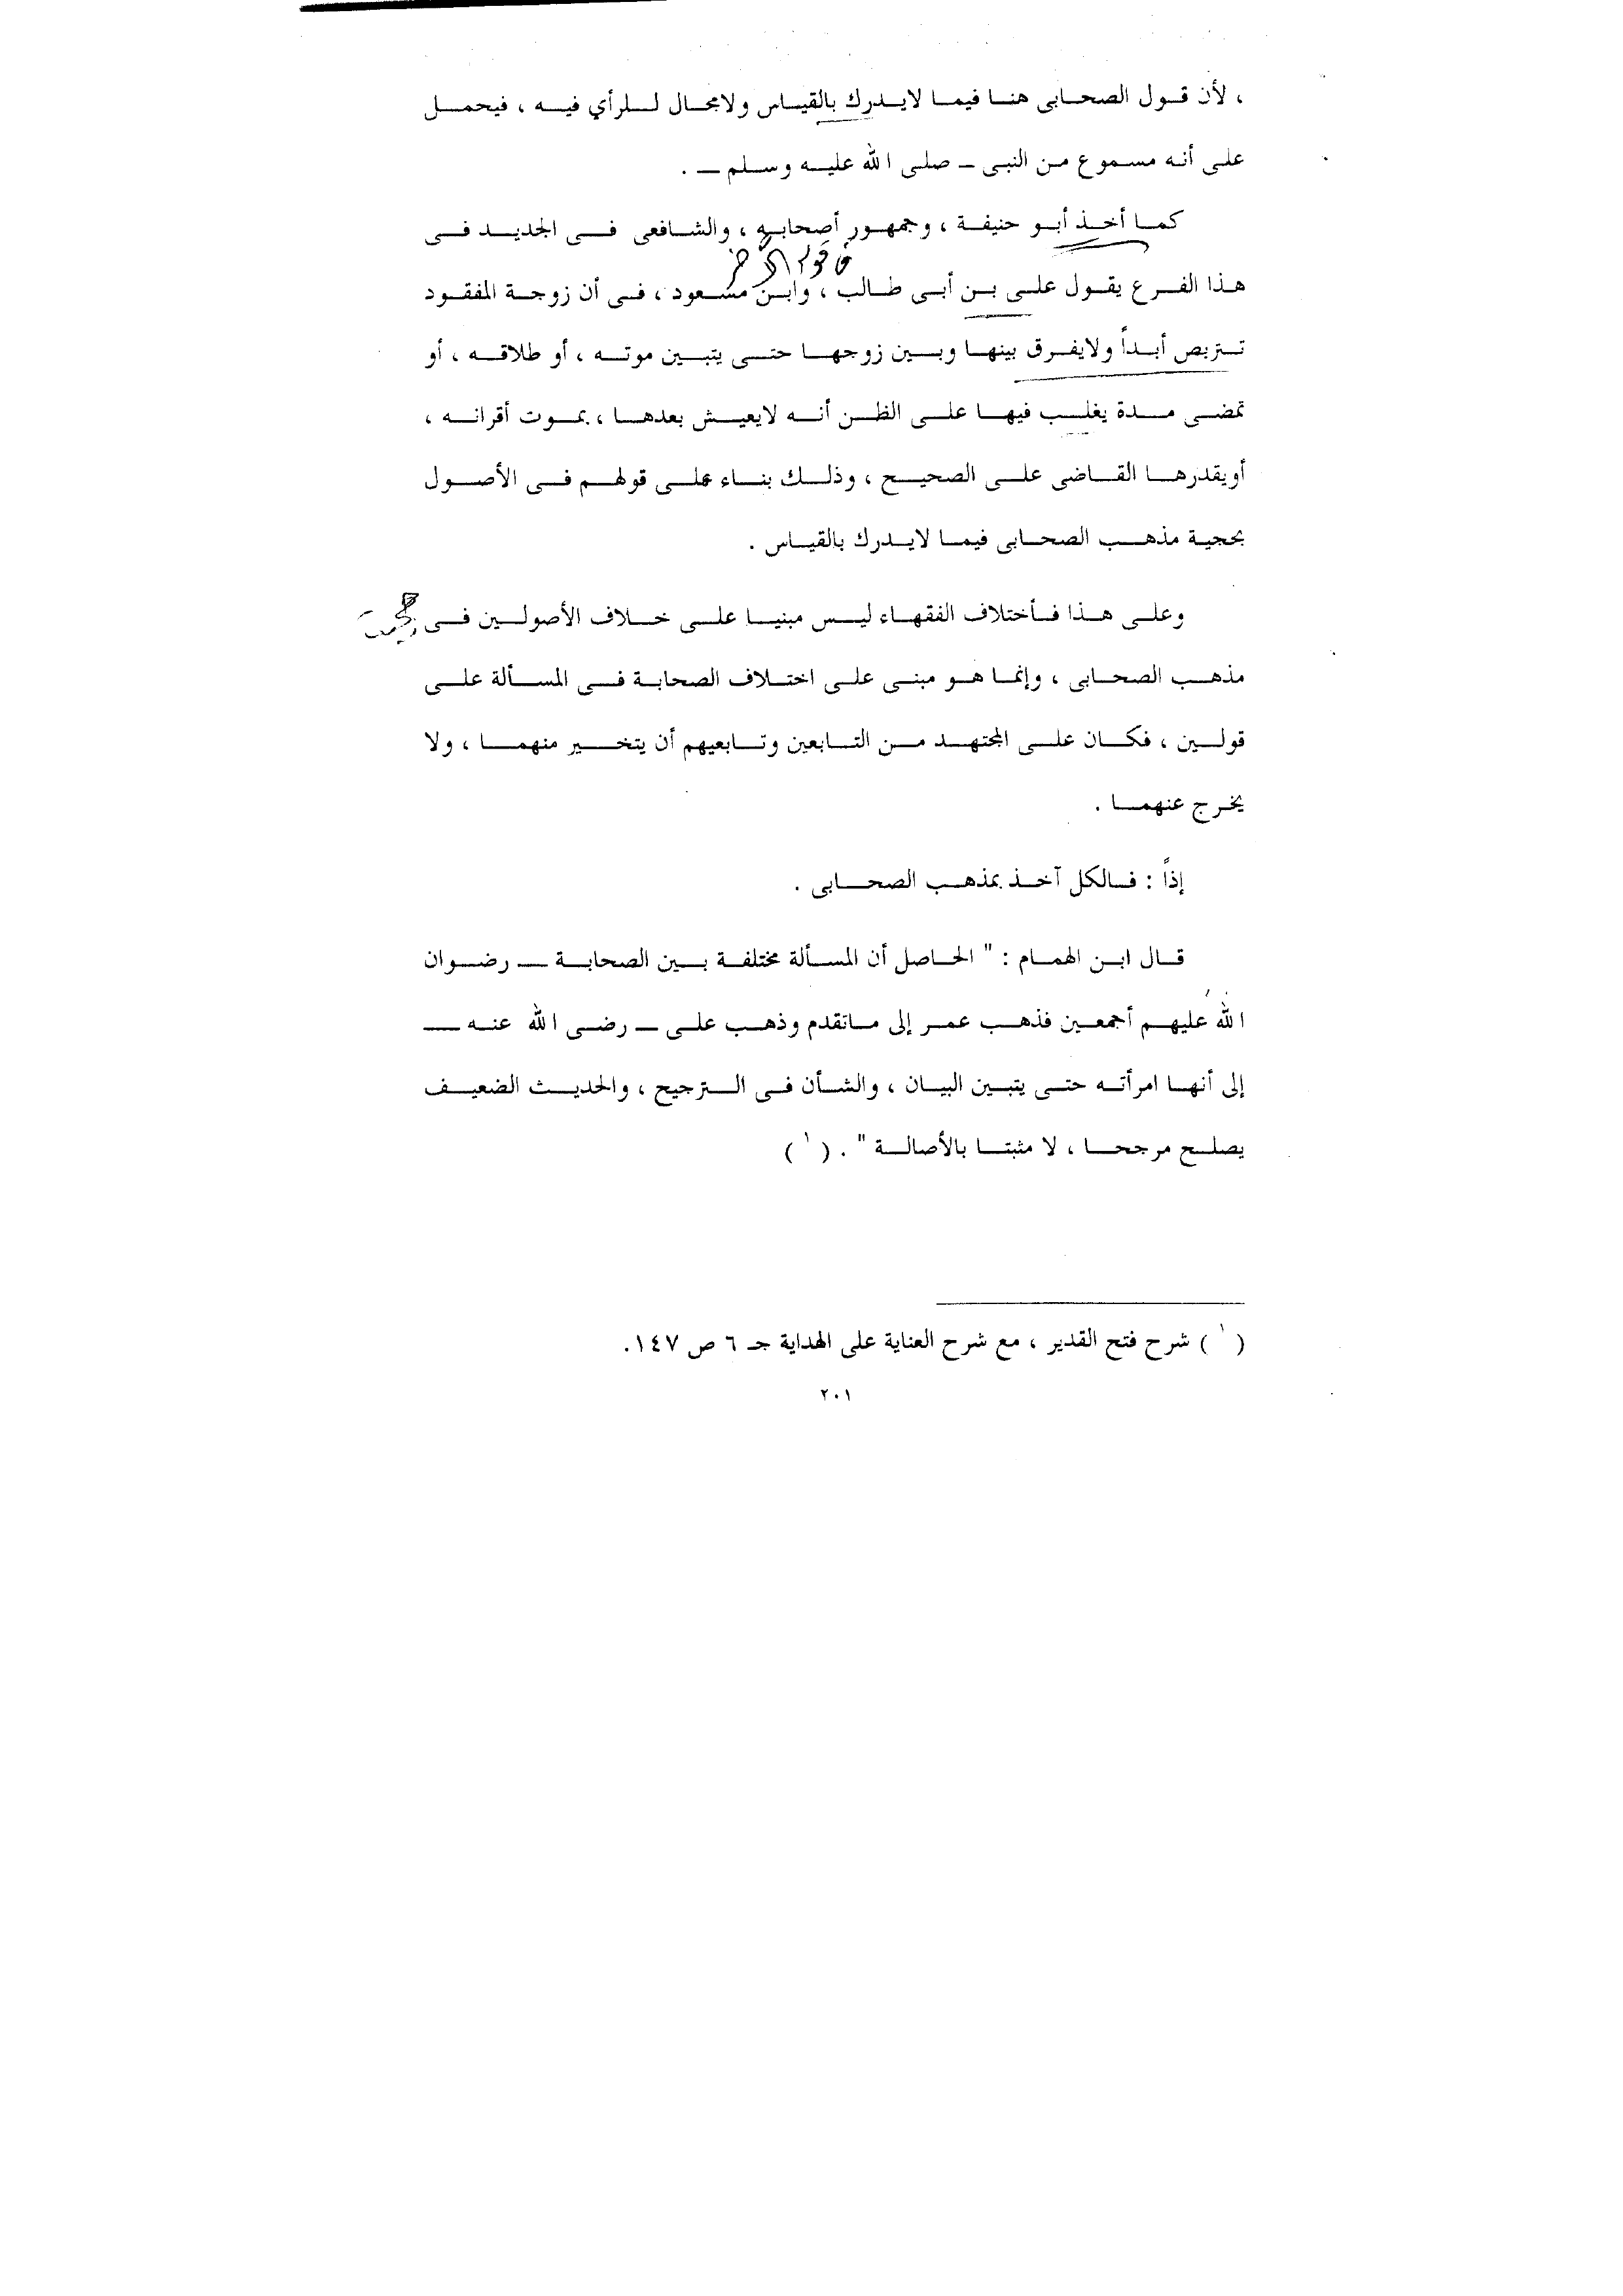 ، لأن قول الصحابى هنا فيما لايدرك بالقياس ولامجال للرأي فيه ، فيحمل
على أنه مسموع من النبى – صلى الله عليه وسلم – .
كما أخذ أبو حنيفة ، وجمهور أصحابه ، والشافعى فى الجديد فى
هذا الفرع يقول على بن أبى طالب ، وابن مسعود ، فى أن زوجة المفقود
تتربص أبداً ولايفرق بينها وبين زوجها حتى يتبين موته ، أو طلاقه ، أو
تمضى مدة يغلب فيها على الظن أنه لايعيش بعدها ، بموت أقرانه ،
أويقدرها القاضى على الصحيح ، وذلك بناء على قولهم فى الأصول
بحجية مذهب الصحابى فيما لايدرك بالقياس .
وعلى هذا فأختلاف الفقهاء ليس مبنيا على خلاف الأصولين فى
مذهب الصحابى ، وإنما هو مبنى على اختلاف الصحابة فى المسألة على
قولين ، فكان على المجتهد من التابعين وتابعيهم أن يتخير منهما ، ولا
يخرج عنهما .
إذاً : فالكل آخذ بمذهب الصحابى .
قال ابن الهمام : " الحاصل أن المسألة مختلفة بين الصحابة – رضوان
الله عليهم أجمعين فذهب عمر إلى ماتقدم وذهب على – رضى الله عنه –
إلى أنها امرأته حتى يتبين البيان ، والشأن فى الترجيح ، والحديث الضعيف
يصلح مرجحا ، لا مثبتا بالأصالة " . (١)
(١) شرح فتح القدير ، مع شرح العناية على الهداية جـ ٦ ص ١٤٧.
٢٠١